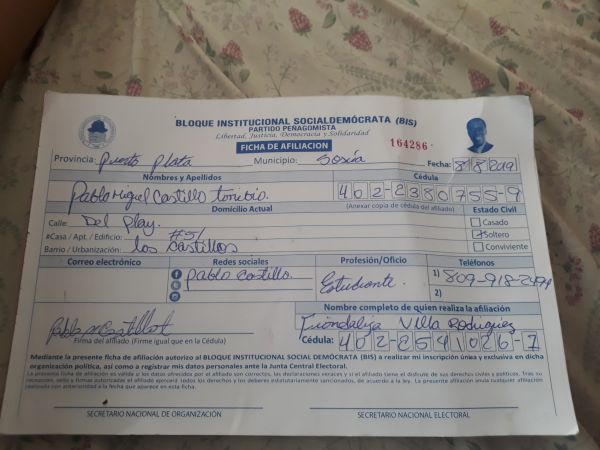 BLOQUE INSTITUCIONAL SOCIALDEMÓCRATA (BIS)
PARTIDO PEÑAGOMISTA
Libertad, Justicia, Democracia y Solidaridad
FICHA DE AFILIACION 164286
Provincia: Puerto Plata Municipio: Sosua Fecha: 8 8 2019
Nombres y Apellidos Cédula
Pablo Miguel Castillo toribio. 402-2380755-9
Domicilio Actual (Anexar copia de cédula del afiliado) Estado Civil
Calle: Del Play. Casado
#Casa / Apt. / Edificio: #51 Soltero
Barrio / Urbanización: los castillos Conviviente
Correo electrónico Redes sociales Profesión/Oficio Teléfonos
pablo castillo. Estudiante. 1) 809-918-
2)
Nombre completo de quien realiza la afiliación
Villa Rodriguez
Firma del afiliado (Firme igual que en la Cédula) Cédula: 402-2541026-7
Mediante la presente ficha de afiliación autorizo al BLOQUE INSTITUCIONAL SOCIAL DEMÓCRATA (BIS) a realizar mi inscripción única y exclusiva en dicha
organización política, así como a registrar mis datos personales ante la Junta Central Electoral.
La presente ficha de afiliación es válida si los datos ofrecidos por el afiliado son correctos, las declaraciones veraces y si el afiliado tiene el disfrute de sus derechos civiles y políticos. Tras su
recepción, sello y firmas autorizadas el afiliado ejercerá todos los derechos y los deberes estatutariamente sancionados, de acuerdo a la ley. La presente afiliación anula cualquier afiliación
realizada con anterioridad a la fecha que aparece en esta ficha.
SECRETARIO NACIONAL DE ORGANIZACIÓN SECRETARIO NACIONAL ELECTORAL